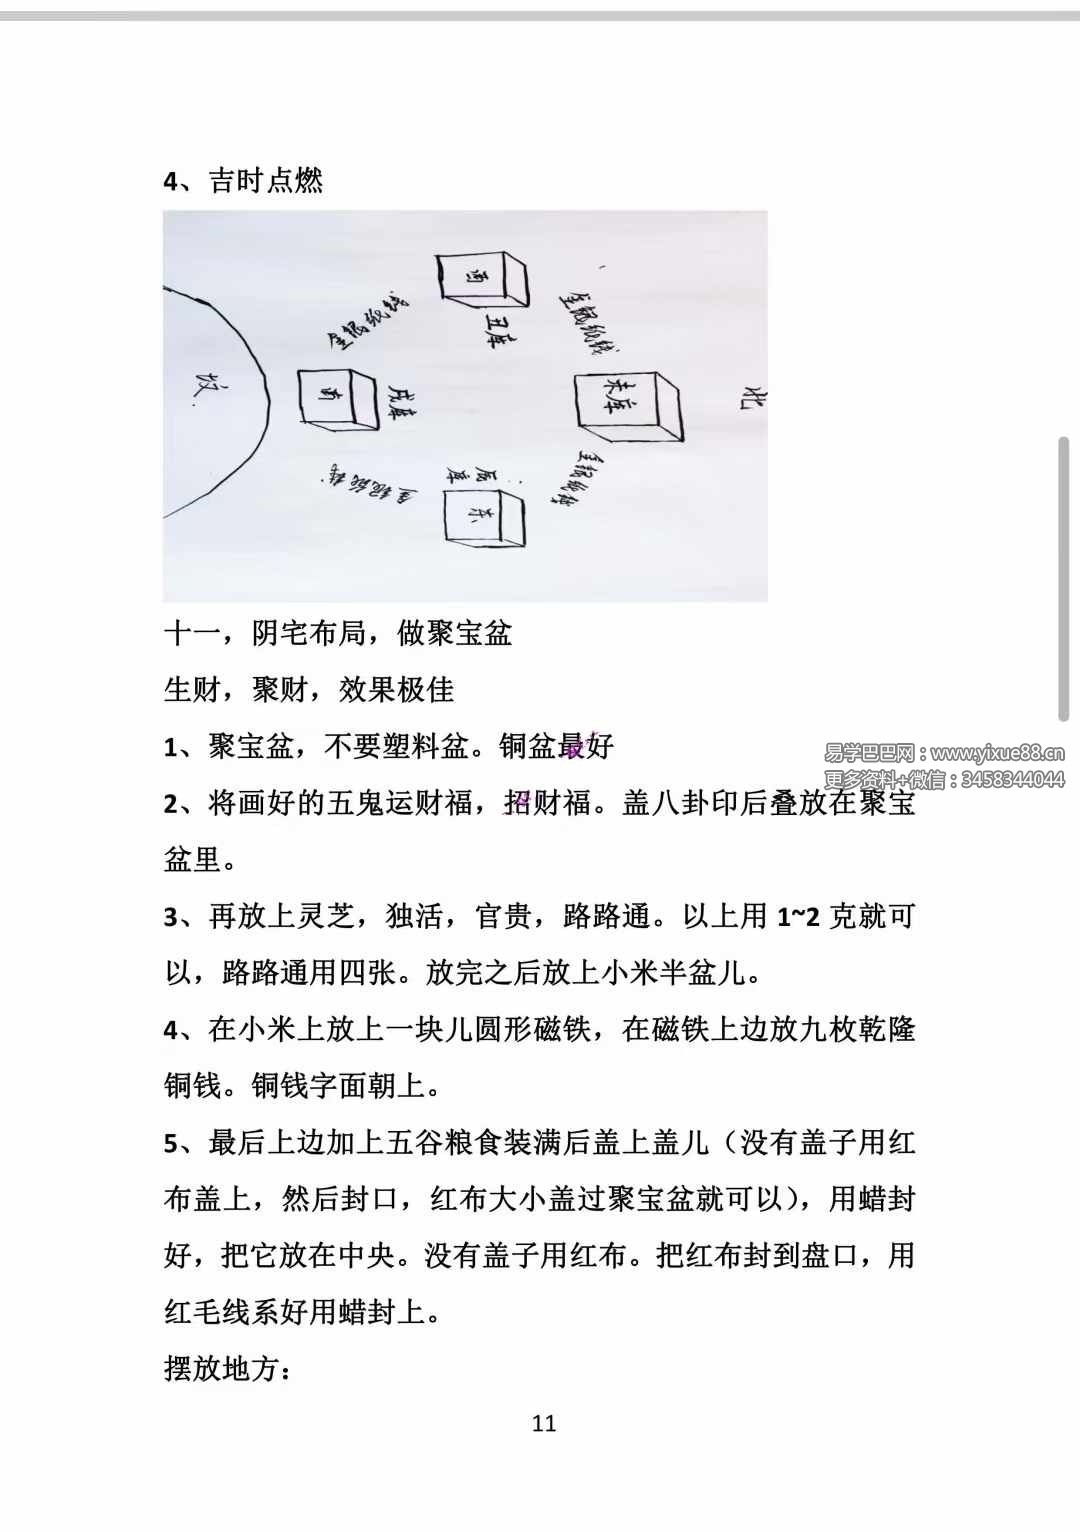 4、吉时点燃
酉
丑库
金银纸钱
金银纸钱
坟
南
戌库
未库
北
辰库
东
金银纸钱
金银纸钱
十一，阴宅布局，做聚宝盆
生财，聚财，效果极佳
1、聚宝盆，不要塑料盆。铜盆最好
易学巴巴网：www.yixue88.cn
更多资料+微信：3458344044
2、将画好的五鬼运财福，招财福。盖八卦印后叠放在聚宝
盆里。
3、再放上灵芝，独活，官贵，路路通。以上用 1~2 克就可
以，路路通用四张。放完之后放上小米半盆儿。
4、在小米上放上一块儿圆形磁铁，在磁铁上边放九枚乾隆
铜钱。铜钱字面朝上。
5、最后上边加上五谷粮食装满后盖上盖儿（没有盖子用红
布盖上，然后封口，红布大小盖过聚宝盆就可以），用蜡封
好，把它放在中央。没有盖子用红布。把红布封到盘口，用
红毛线系好用蜡封上。
摆放地方：
11